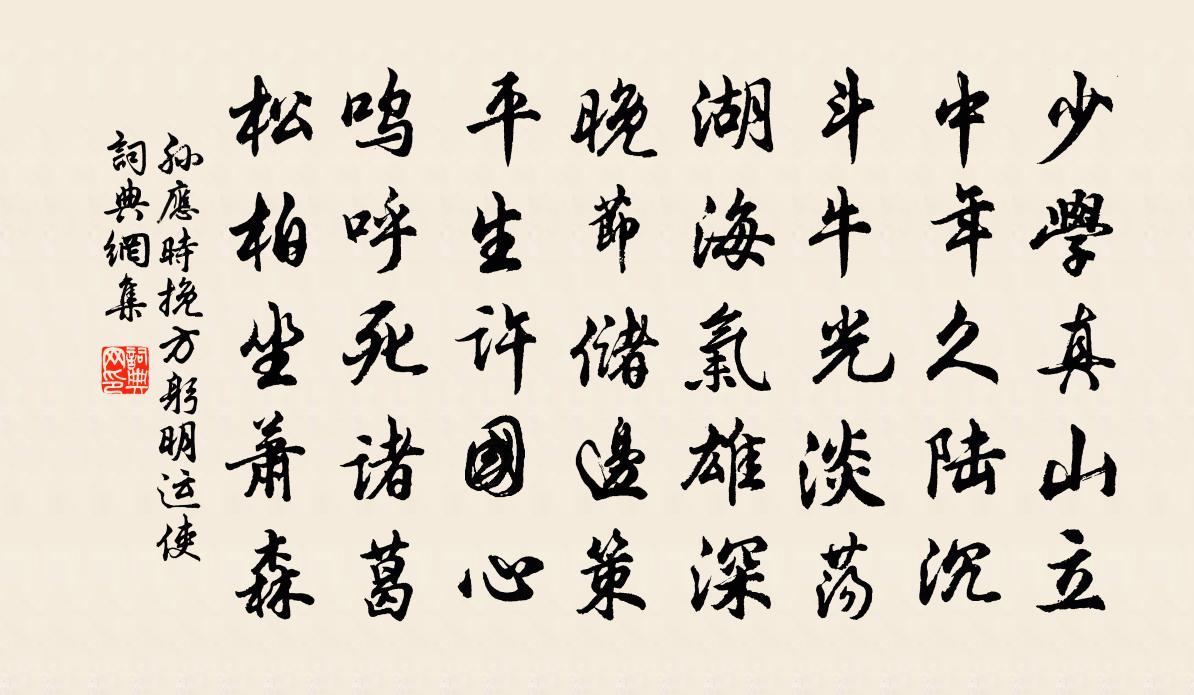 少學真山立
中年久陆沉
斗牛光淡荡
湖海氣雄深
晚節儲邊策
平生許國心
鸣呼死诸葛
松柏坐蕭森
孙應時挽方躬明运使
詞典網集
詞典网印